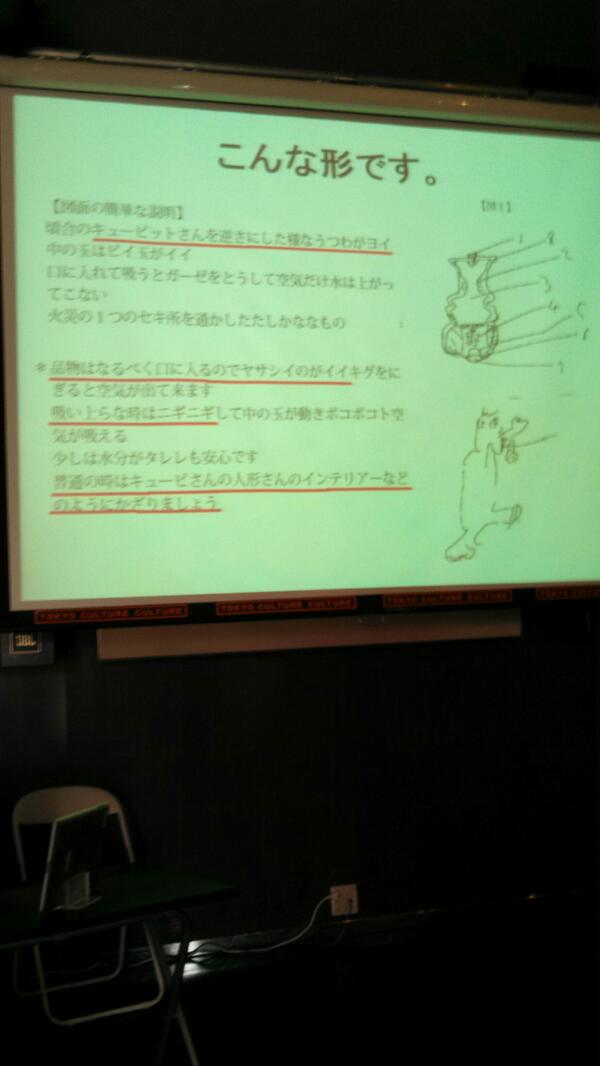 こんな形です。
【図面の簡単な説明】
【図1】
頃合のキューピットさんを逆さにした様なうつわがヨイ
中の玉はビイ玉がイイ
口に入れて吸うとガーゼをとうして空気だけ水は上がっ
てこない
火災の1つのセキ所を逃かしたたしかななもの
*品物はなるべく口に入るのでヤサシイのがイイキグをに
ぎると空気が出て来ます
吸い上らな時はニギニギして中の玉が動きボコボコト空
気が吸える
少しは水分がタレレも安心です
普通の時はキューピさんの人形さんのインテリアーなど
のようにかざりましょう
1
8
2
3
4
5
6
TOKYO CULTURE CULTURE
TOKYO CULTURE CULTURE
TOKYO CULTURE CULTURE
TOKYO CULTURE
JBL